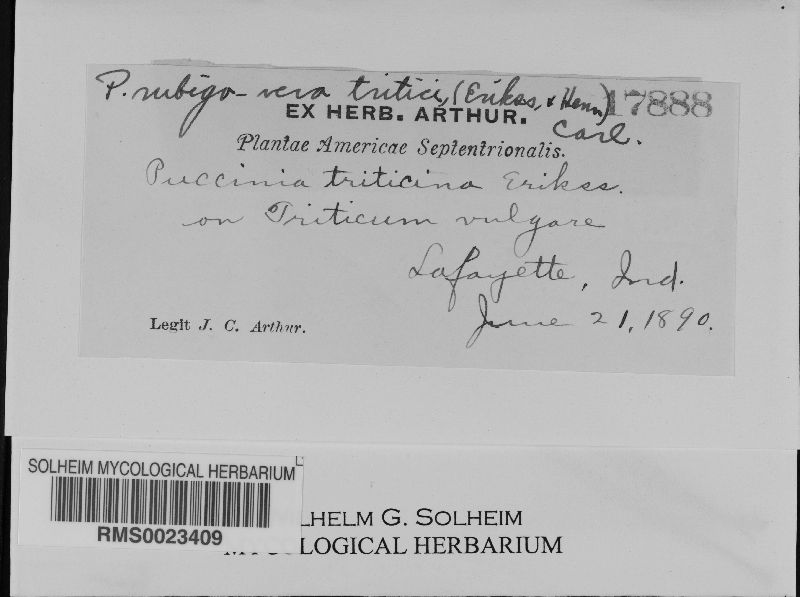 P. rubigo-vera tritici, (Erikss. & Henn) Carl.
17888
EX HERB. ARTHUR.
Plantae Americae Septentrionalis.
Puccinia triticina Erikss.
on Triticum vulgare
Lafayette, Ind.
June 21, 1890.
Legit J. C. Arthur.
SOLHEIM MYCOLOGICAL HERBARIUM
RMS0023409
LHELM G. SOLHEIM
OLOGICAL HERBARIUM